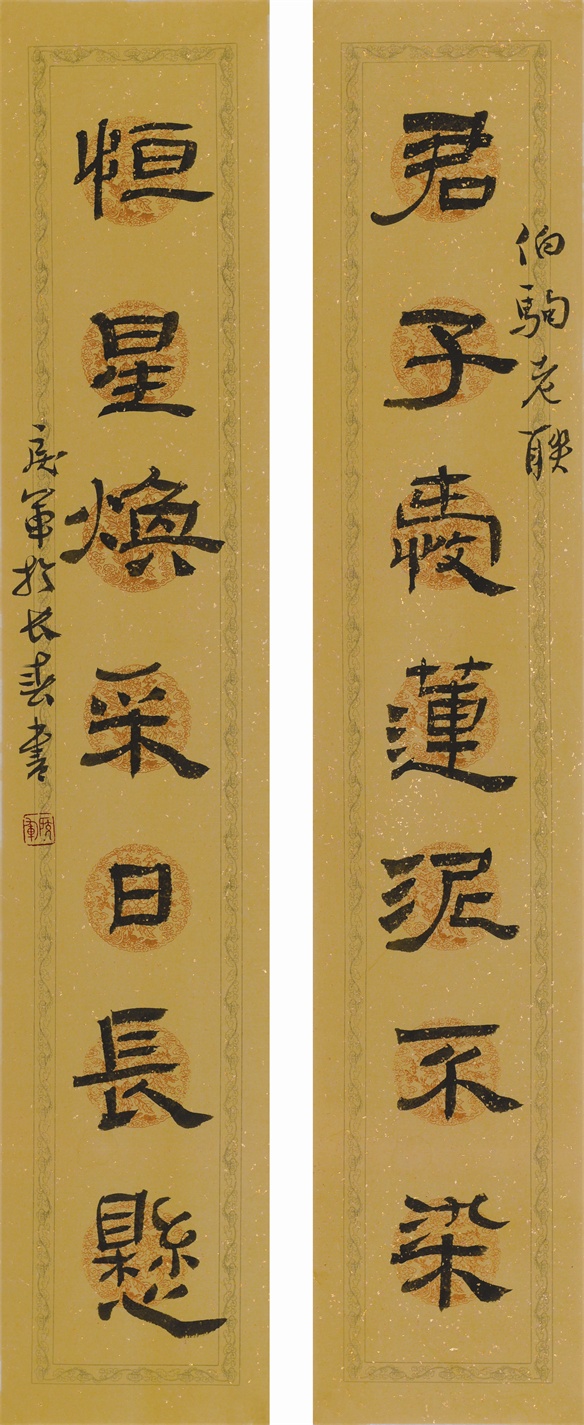 君子愛蓮泥不染
伯駒老联
恒星煥采日長懸
軍於长春書